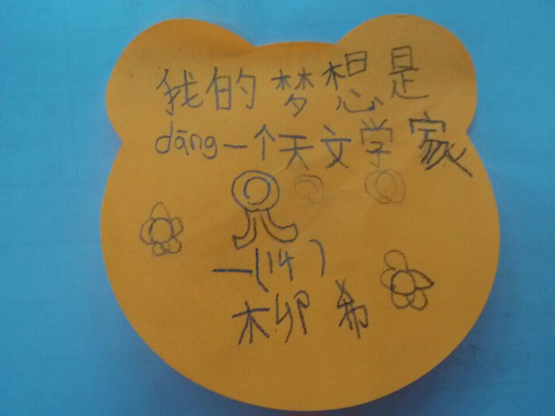 我的梦想是
dāng一个天文学家
一(14)
柳希